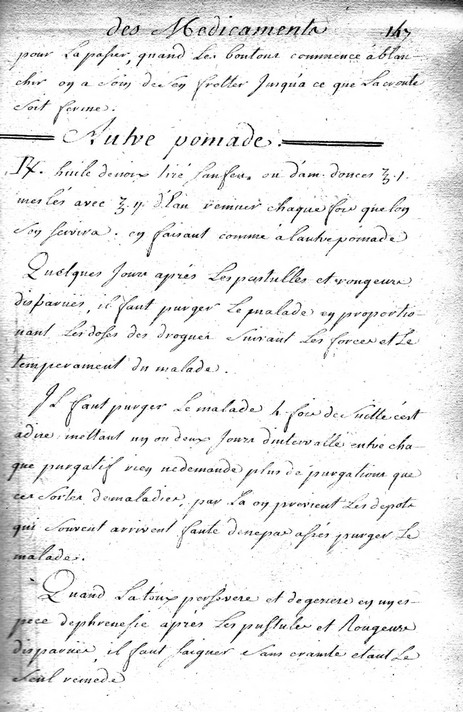 des Medicaments 147
pour La passer, quand Les boutons commence a blan-
chir on a soin de s'en frotter Jusqu'a ce que La croute
soit ferme.
Autre pomade.
Rx. huile denoix tiré sans feu, ou dam. douces ℥. 1.
meslés avec ℥. ij. d'Eau remuer chaque fois que lon
s'en servira. en faisant comme a lautre pomade
Quelques Jours aprés Les pustulles et rougeurs
disparuës, il faut purger Le malade en proportio-
nant Les doses des drogues suivant Les forces et Le
temperament du malade.
Il faut purger Le malade 4 fois de suitte c'est
adire mettant un ou deux Jours dintervalle entre cha-
que purgatif rien ne demande plus de purgations que
ces sortes de maladies, par La on previent Les depots
qui souvent arrivent faute de ne pas assés purger Le
malade.
Quand La toux persevere et degenere en un es-
pece de phrenesie aprés Les pustules et Rougeurs
disparues, il faut saigner sans crainte etant Le
seul remede